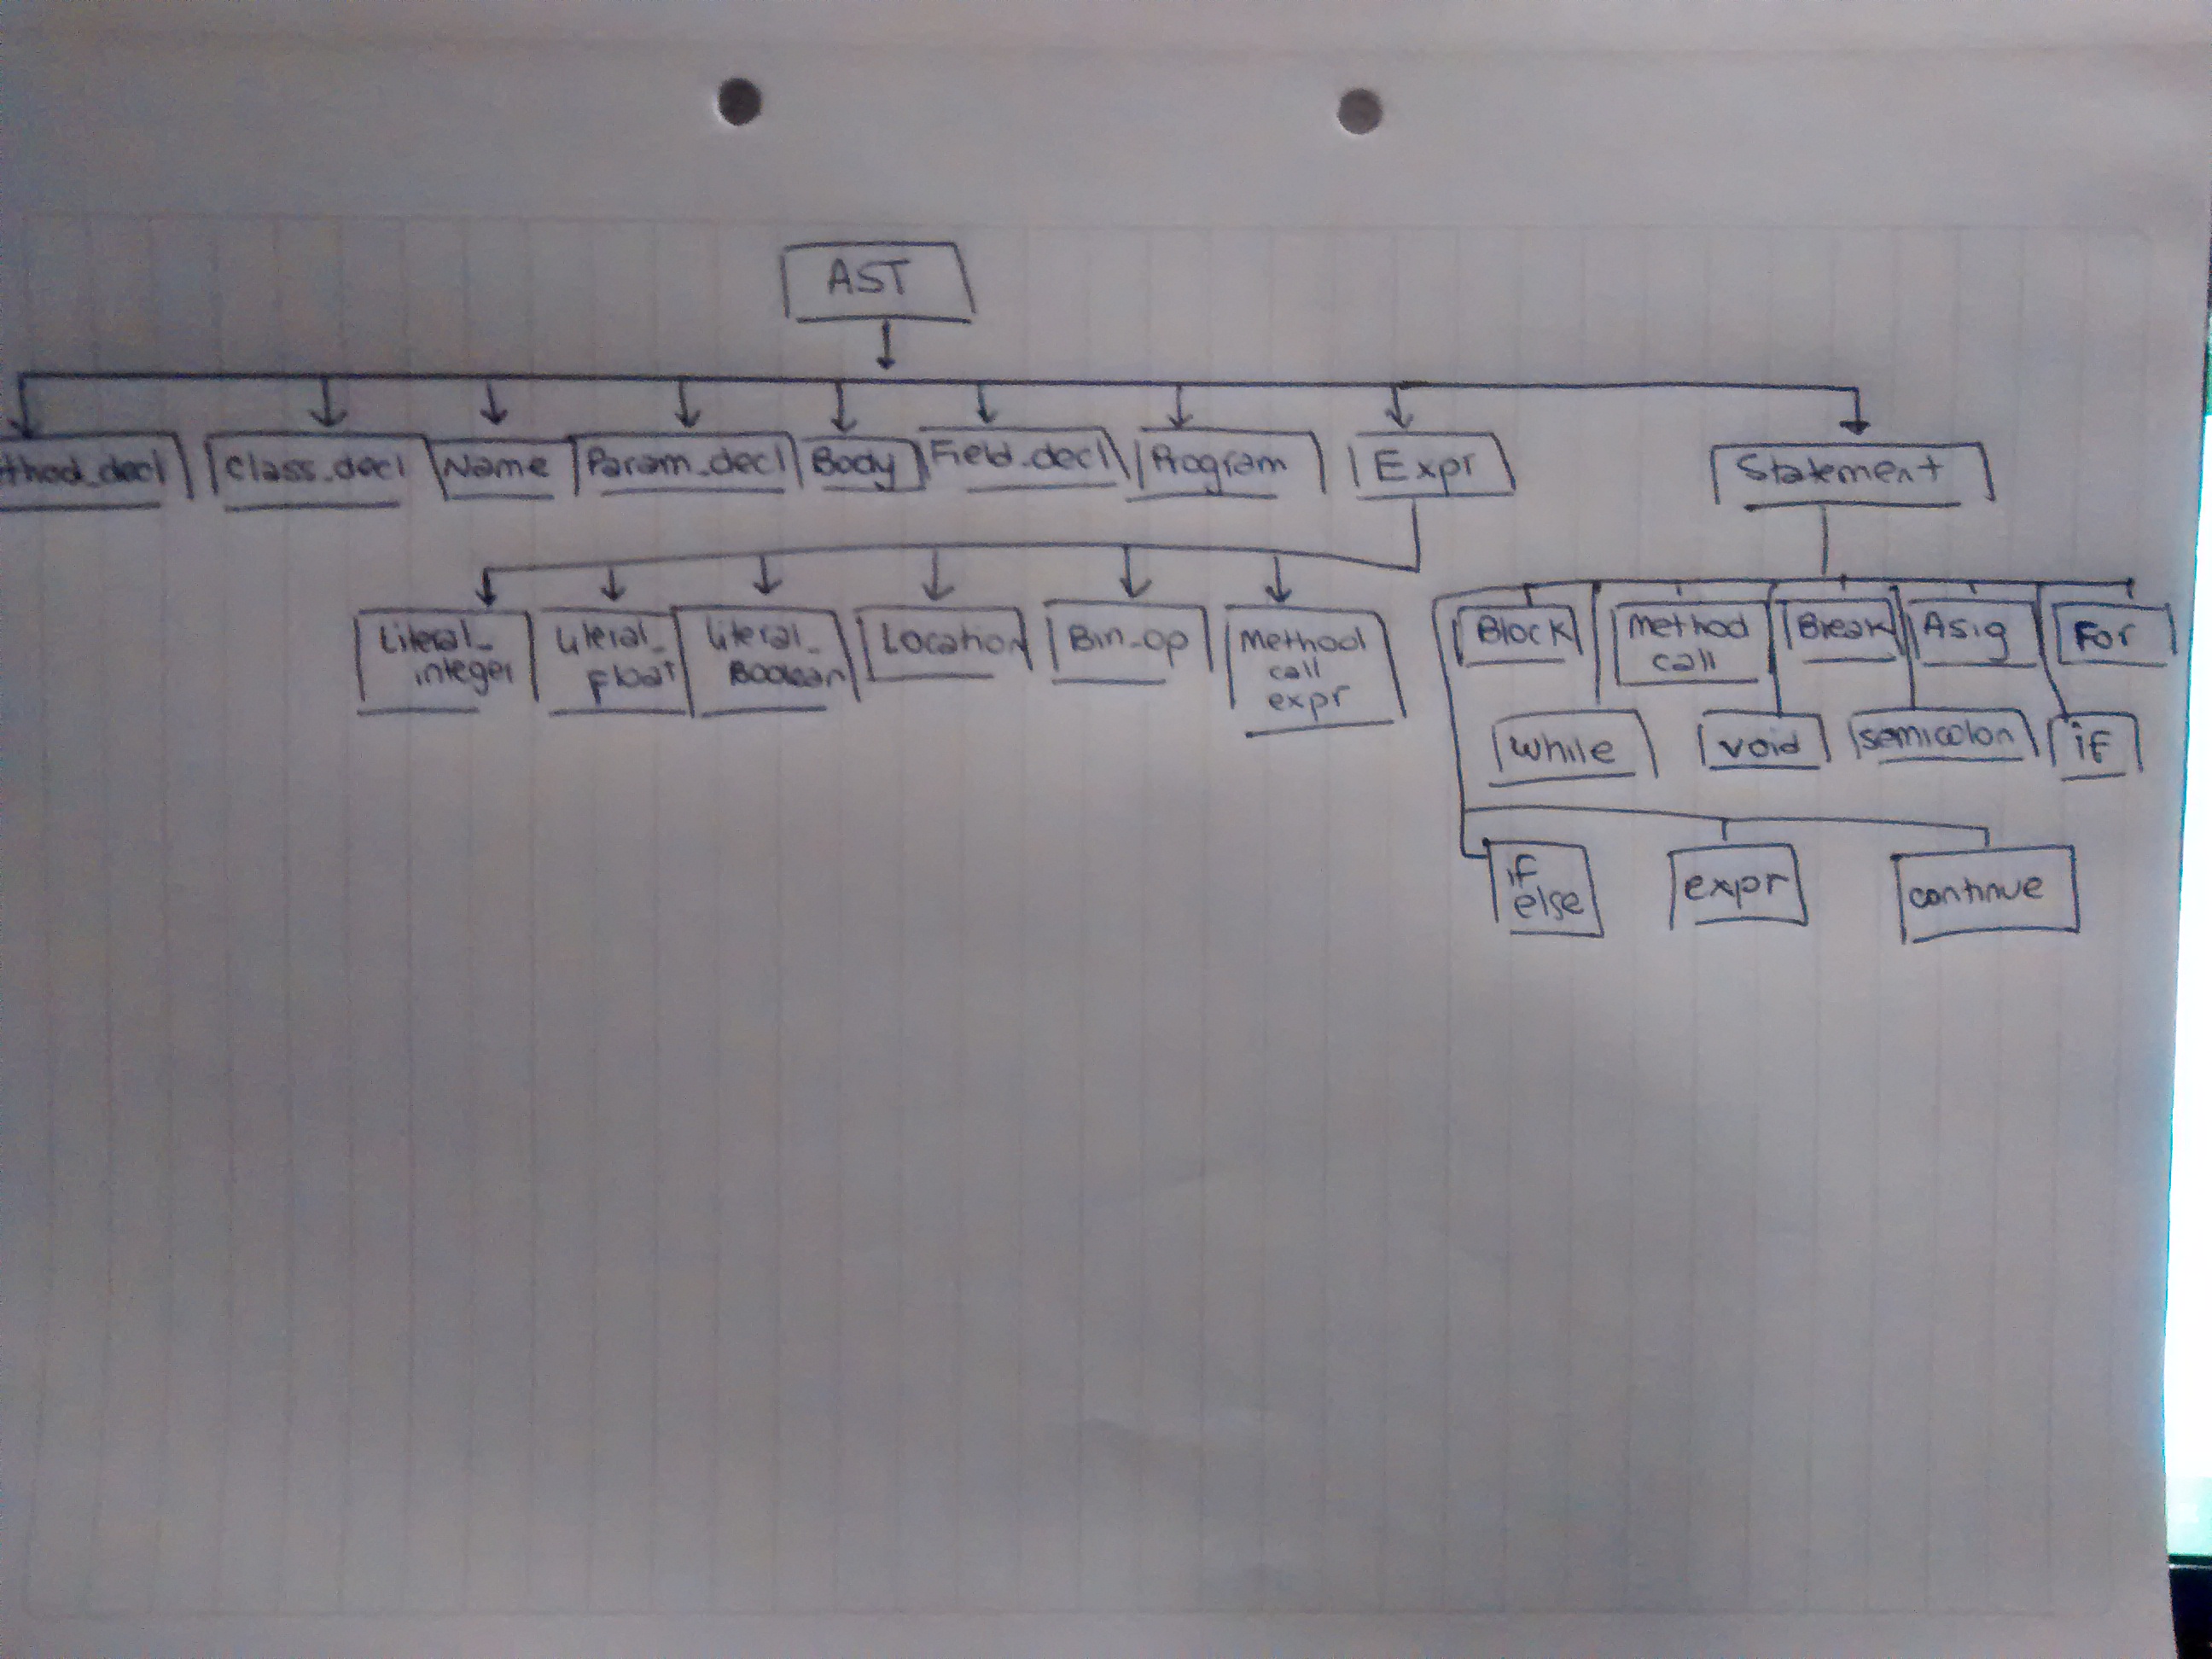 AST
thod_decl
Class_decl
Name
Param_decl
Body
Field_decl
Program
Expr
Statement
Literal_
integer
Literal_
float
Literal_
Boolean
Location
Bin_op
Method
call
expr
Block
method
call
Break
Asig
For
while
void
semicolon
if
if
else
expr
continue